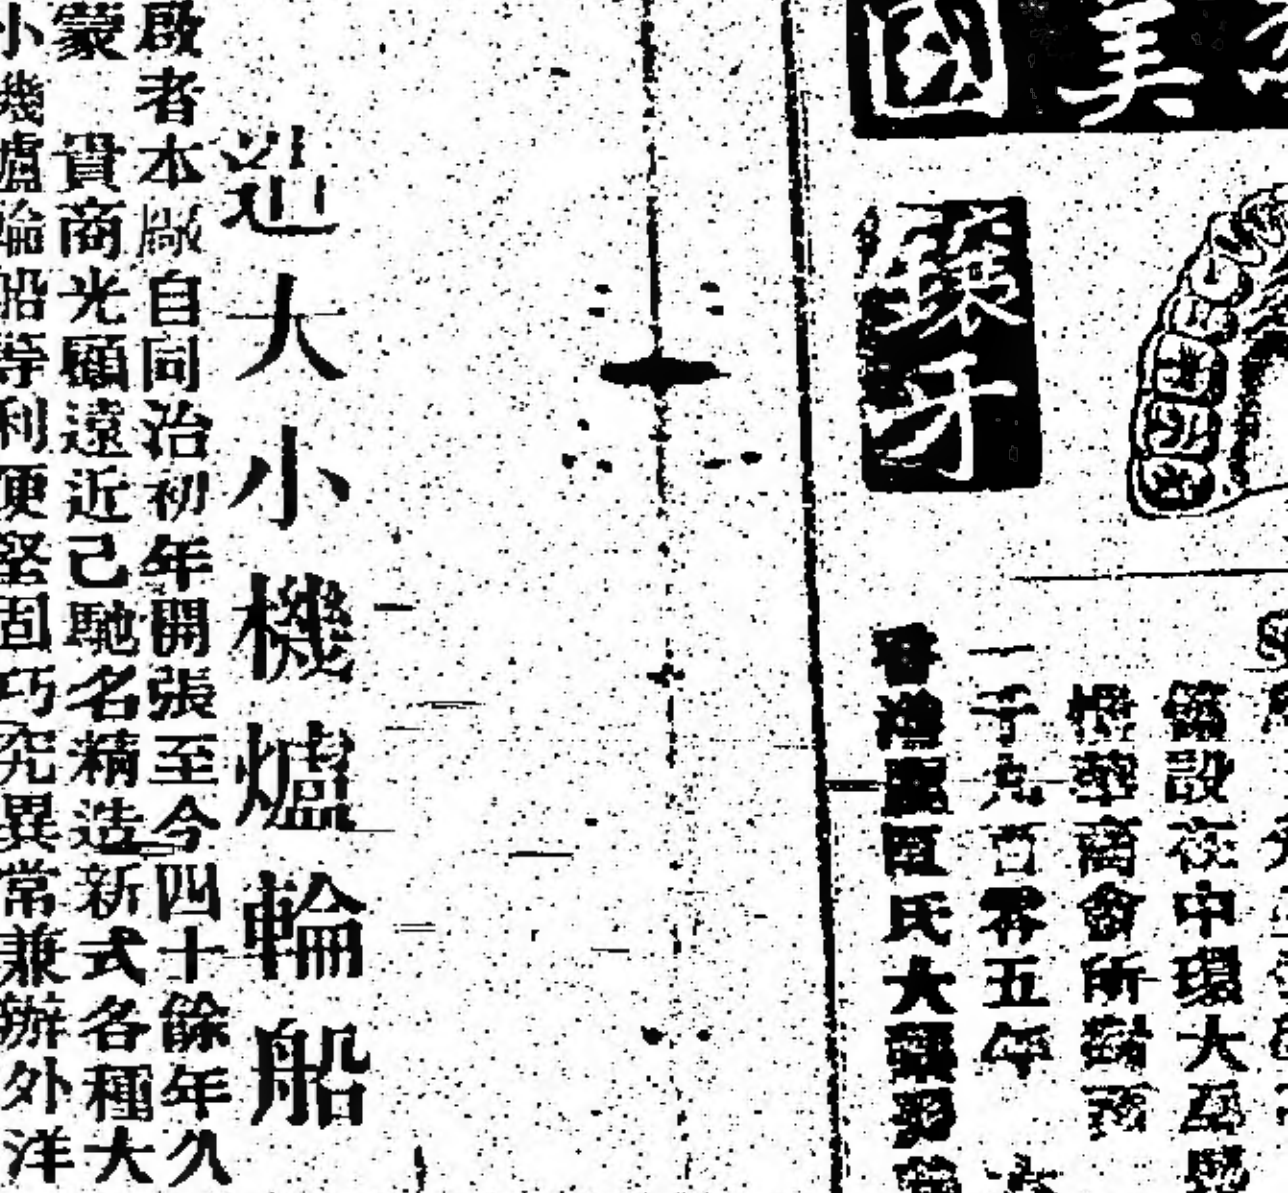 美國
鑲牙
設在中環大
華商會所對面
一千九百零五年
香港臣氏大
造大小機爐輪船
啟者本廠自同治初年開張至今四十餘年久
蒙 貴商光顧遠近己馳名精造新式各種大
小機爐輪船等利便堅固巧究異常兼辦外洋